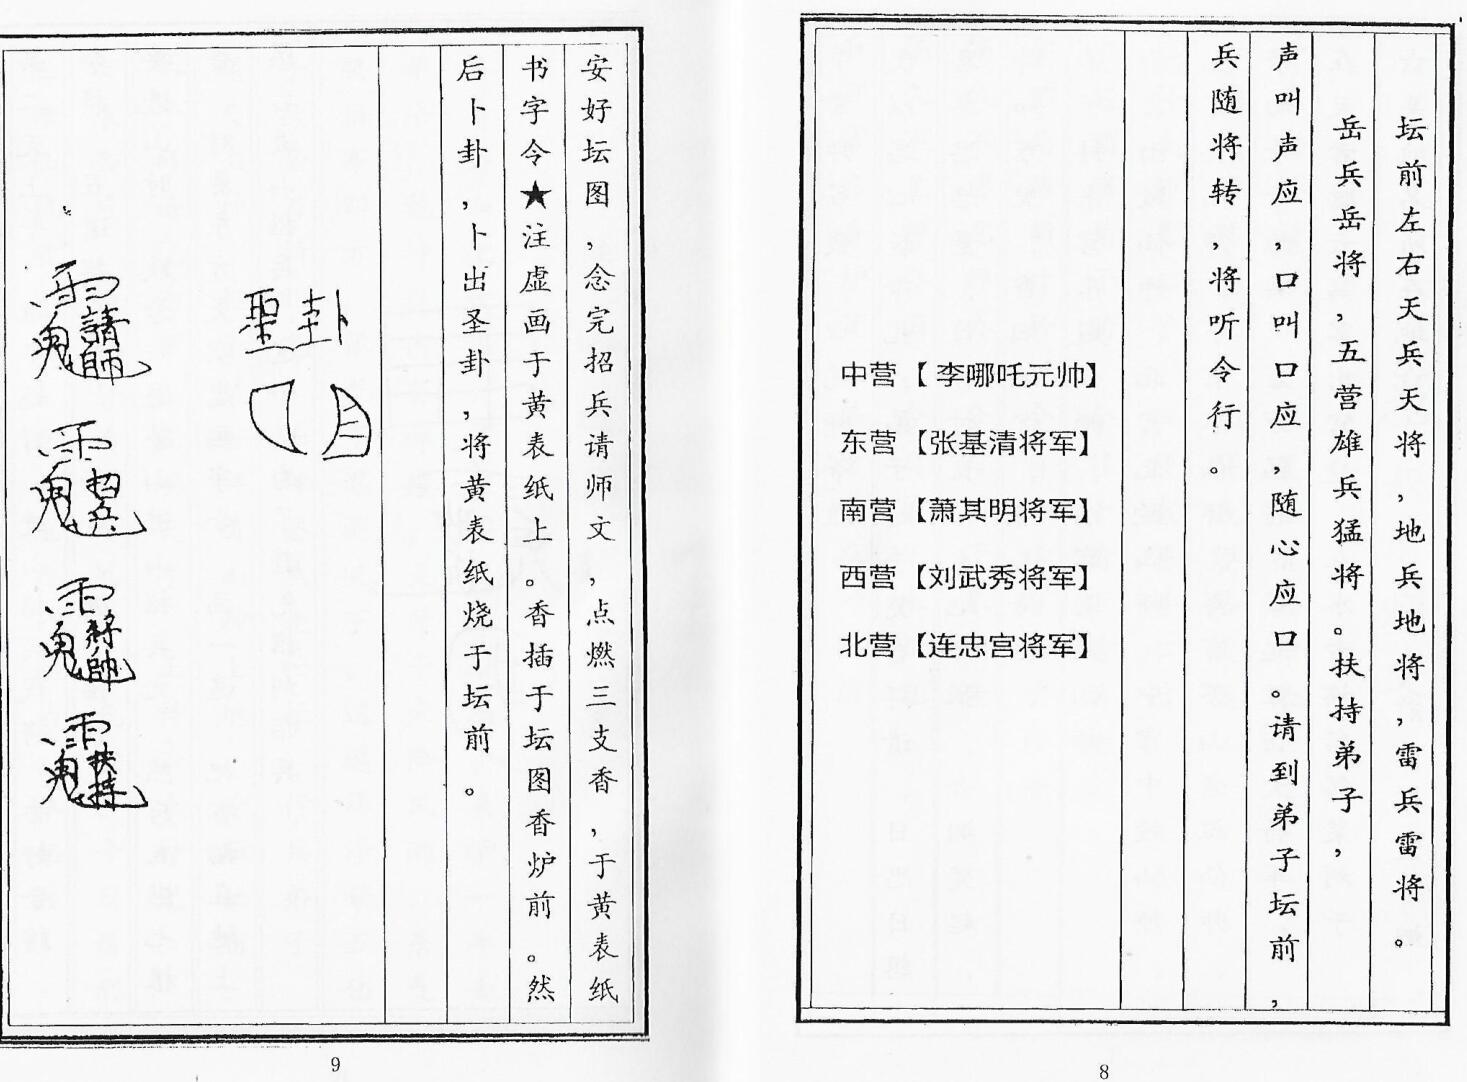 坛前左右天兵天将，地兵地将，雷兵雷将。
岳兵岳将，五营雄兵猛将。扶持弟子，
声叫声应，口叫口应，随心应口。请到弟子坛前，
兵随将转，将听令行。
中营【李哪吒元帅】
东营【张基清将军】
南营【萧其明将军】
西营【刘武秀将军】
北营【连忠宫将军】
8
安好坛图，念完招兵请师文，点燃三支香，于黄表纸
书字令★注虚画于黄表纸上。香插于坛图香炉前。然
后卜卦，卜出圣卦，将黄表纸烧于坛前。
聖卦
9